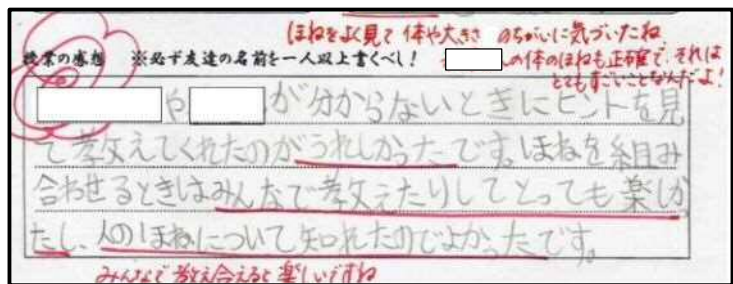 ほねをよく見て 体や大きさ のちがいに気づいたね
授業の感想 ※必ず友達の名前を一人以上書くべし! の体のほねも正確で、それは
とてもすごいことなんだよ!
や が分からないときにヒントを見
て教えてくれたのがうれしかったです。ほねを組み
合わせるときはみんなで教えたりしてとっても楽しか
たし、人のほねについて知れたのでよかったです。
みんなで教え合えると楽しいですね